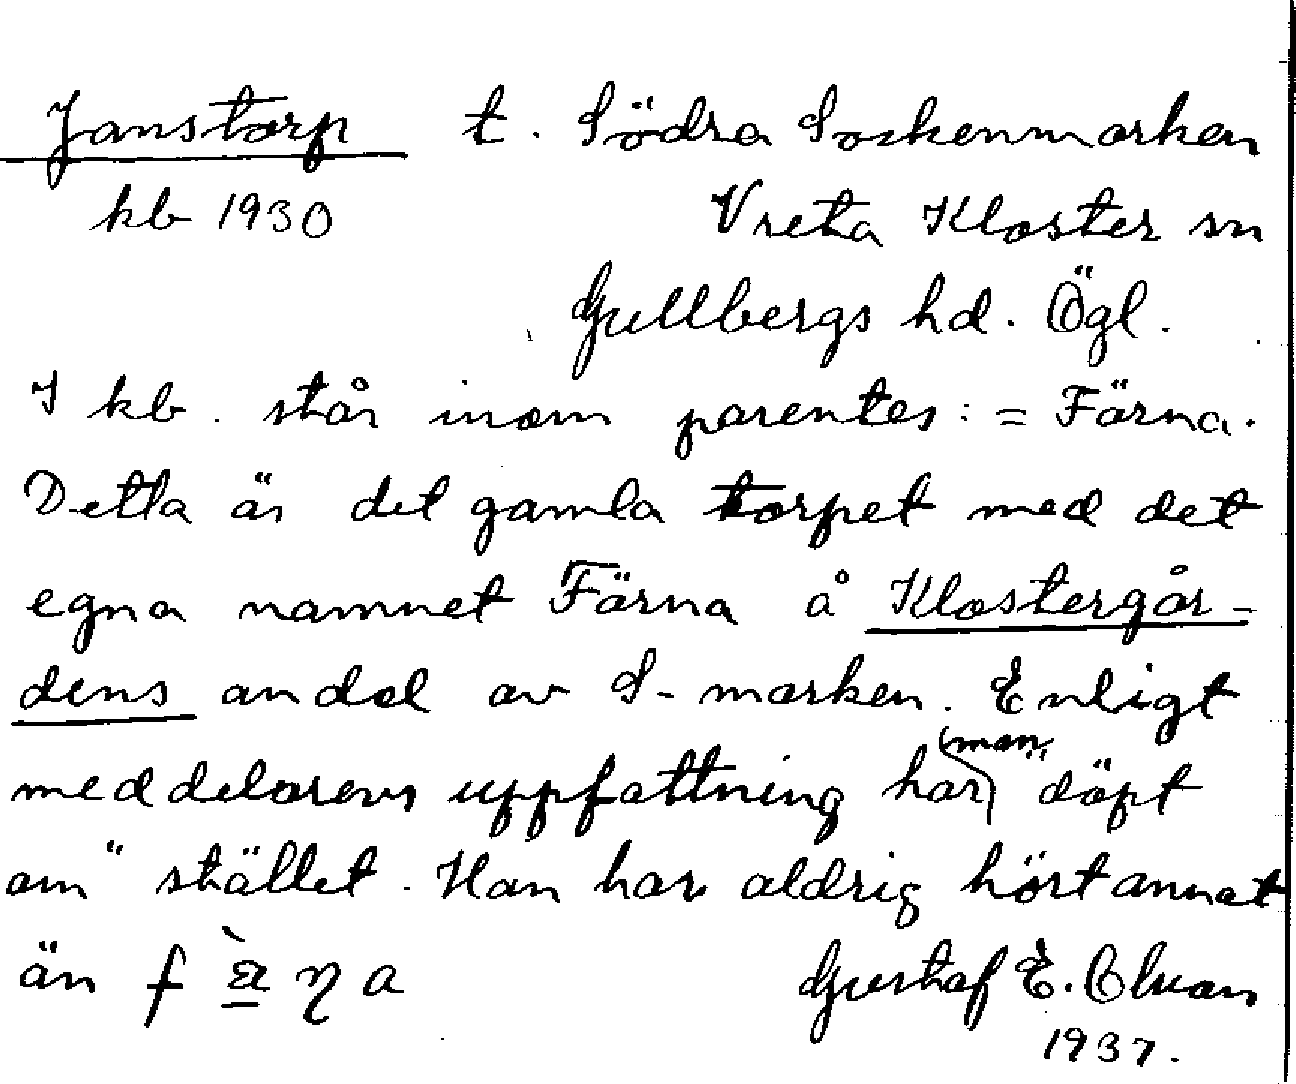 Janstorp t. Södra Sockenmarken
kb 1930 Vreta Kloster sn
Gullbergs hd. Ögl.
I kb. står inom parentes: = Färna.
Detta är det gamla torpet med det
egna namnet Färna å Klostergår-
dens andel av S-marken. Enligt
meddelarens uppfattning har man "döpt
om" stället. Han har aldrig hört annat
än f æ̀ ŋ a Gustaf E. Elvan
1937.